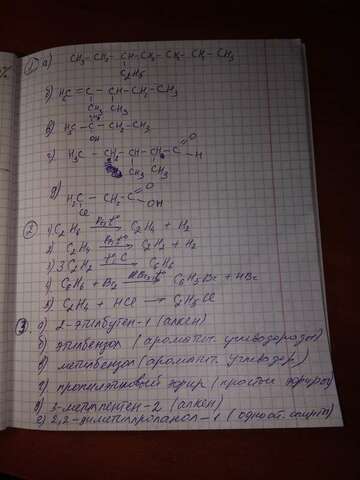 ① а) CH₃-CH₂-CH-CH₂-CH₂-CH-CH₃
C₂H₅
б) H₃C=C-CH-CH₂-CH₃
CH₃ CH₃
в) H₃C-C-CH₂-CH₃
OH
г) H₃C-CH₂-CH-CH₂-C=O-H
CH₃ CH₃
д) H₂C-CH₂-C=O
OH
Cl
② 1) C₂H₆ → C₂H₄ + H₂
2) C₂H₄ → C₂H₂ + H₂
3) 3C₂H₂ → C₆H₆
4) C₆H₆ + Br₂ → C₆H₅Br + HBr
5) C₂H₄ + HCl → C₂H₅Cl
③ а) 2-этилбутен-1 (алкен)
б) этилбензол (аромат. углеводороды)
в) метилбензол (аромат. углевод.)
г) пропилэтиловый эфир (простые эфиры)
д) 3-метилпентен-2 (алкен)
е) 2,2-диметилпропанол-1 (одноат. спирты)